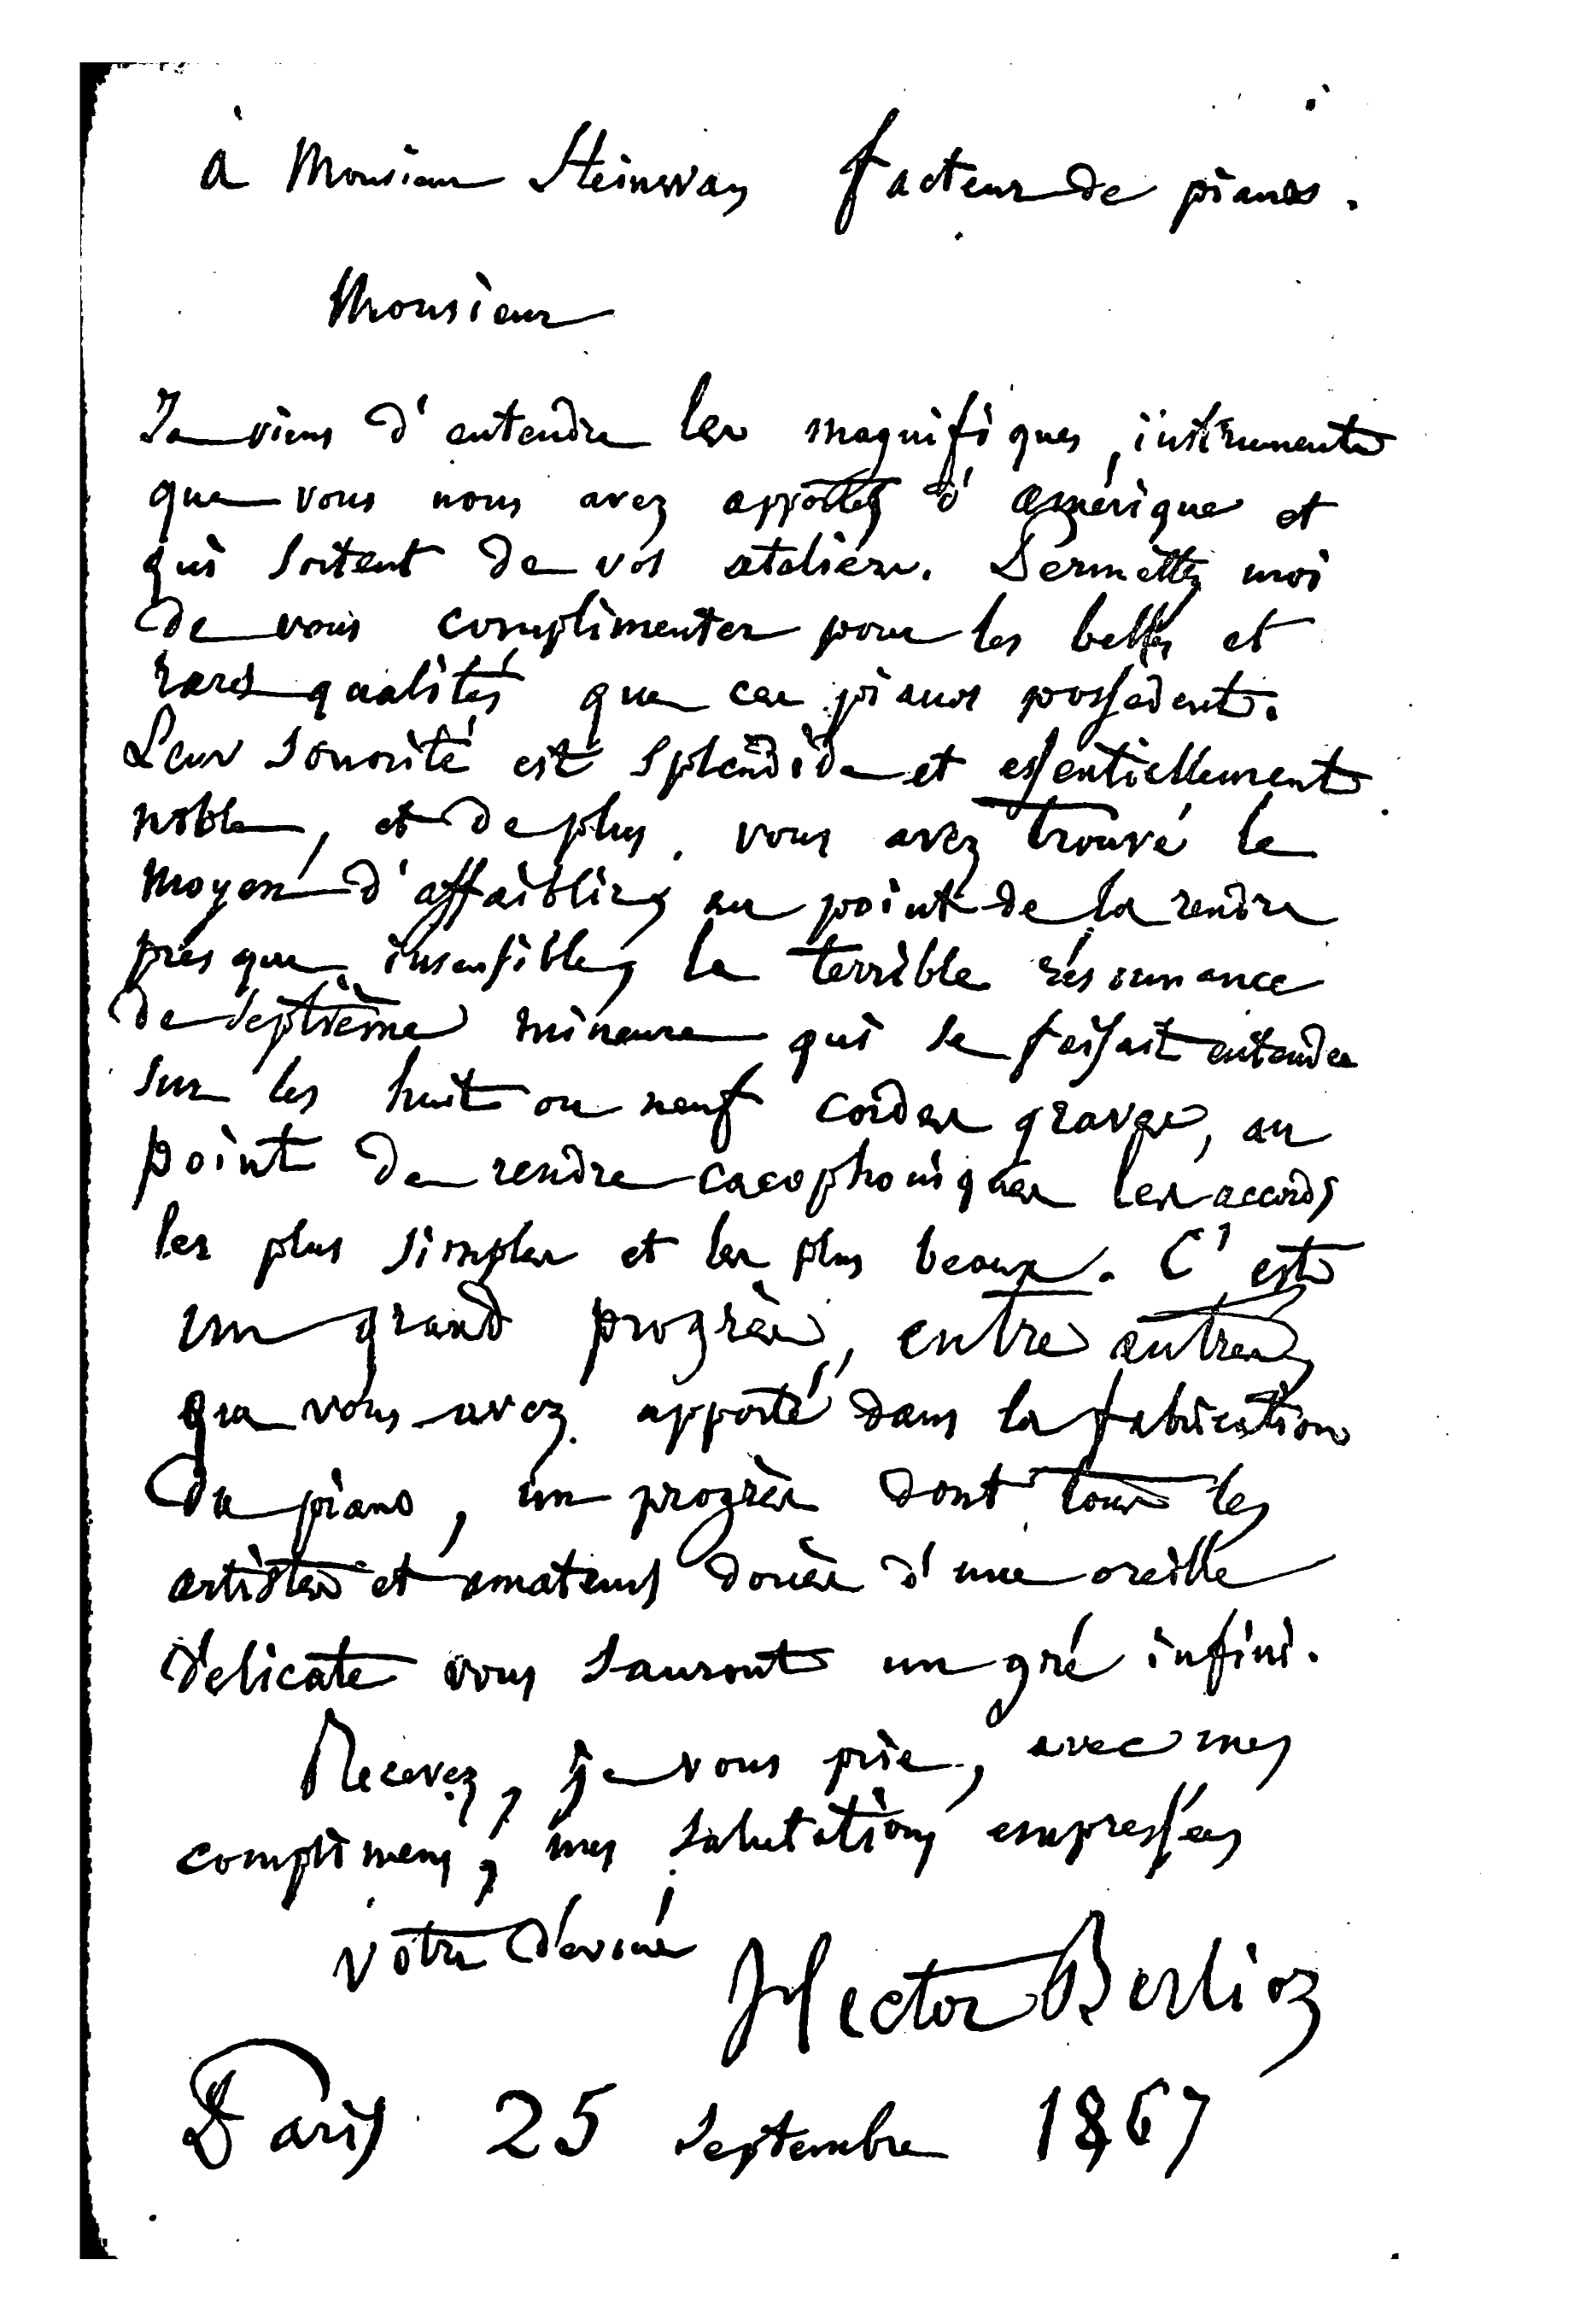 à Monsieur Steinway facteur de pianos.
Monsieur
Je viens d'entendre les magnifiques instruments
que vous nous avez apportés d'amérique et
qui sortent de vos ateliers. Permettez moi
de vous complimenter pour les belles et
rares qualités que ces pianos possèdent.
Leur sonorité est splendide et essentiellement
noble, et de plus, vous avez trouvé le
moyen d'affaiblir, au point de la rendre
presque insensible, la terrible résonnance
de septième mineure qui se faisait entendre
sur les huit ou neuf cordes graves, au
point de rendre cacophoniques les accords
les plus simples et les plus beaux. C'est
un grand progrès, entre autres,
que vous avez apporté dans la fabrication
du piano, un progrès dont tous les
artistes et amateurs doués d'une oreille
délicate vous sauront un gré infini.
Recevez, je vous prie, avec mes
complimens, mes salutations empressées
votre dévoué
Hector Berlioz
Paris 25 septembre 1867